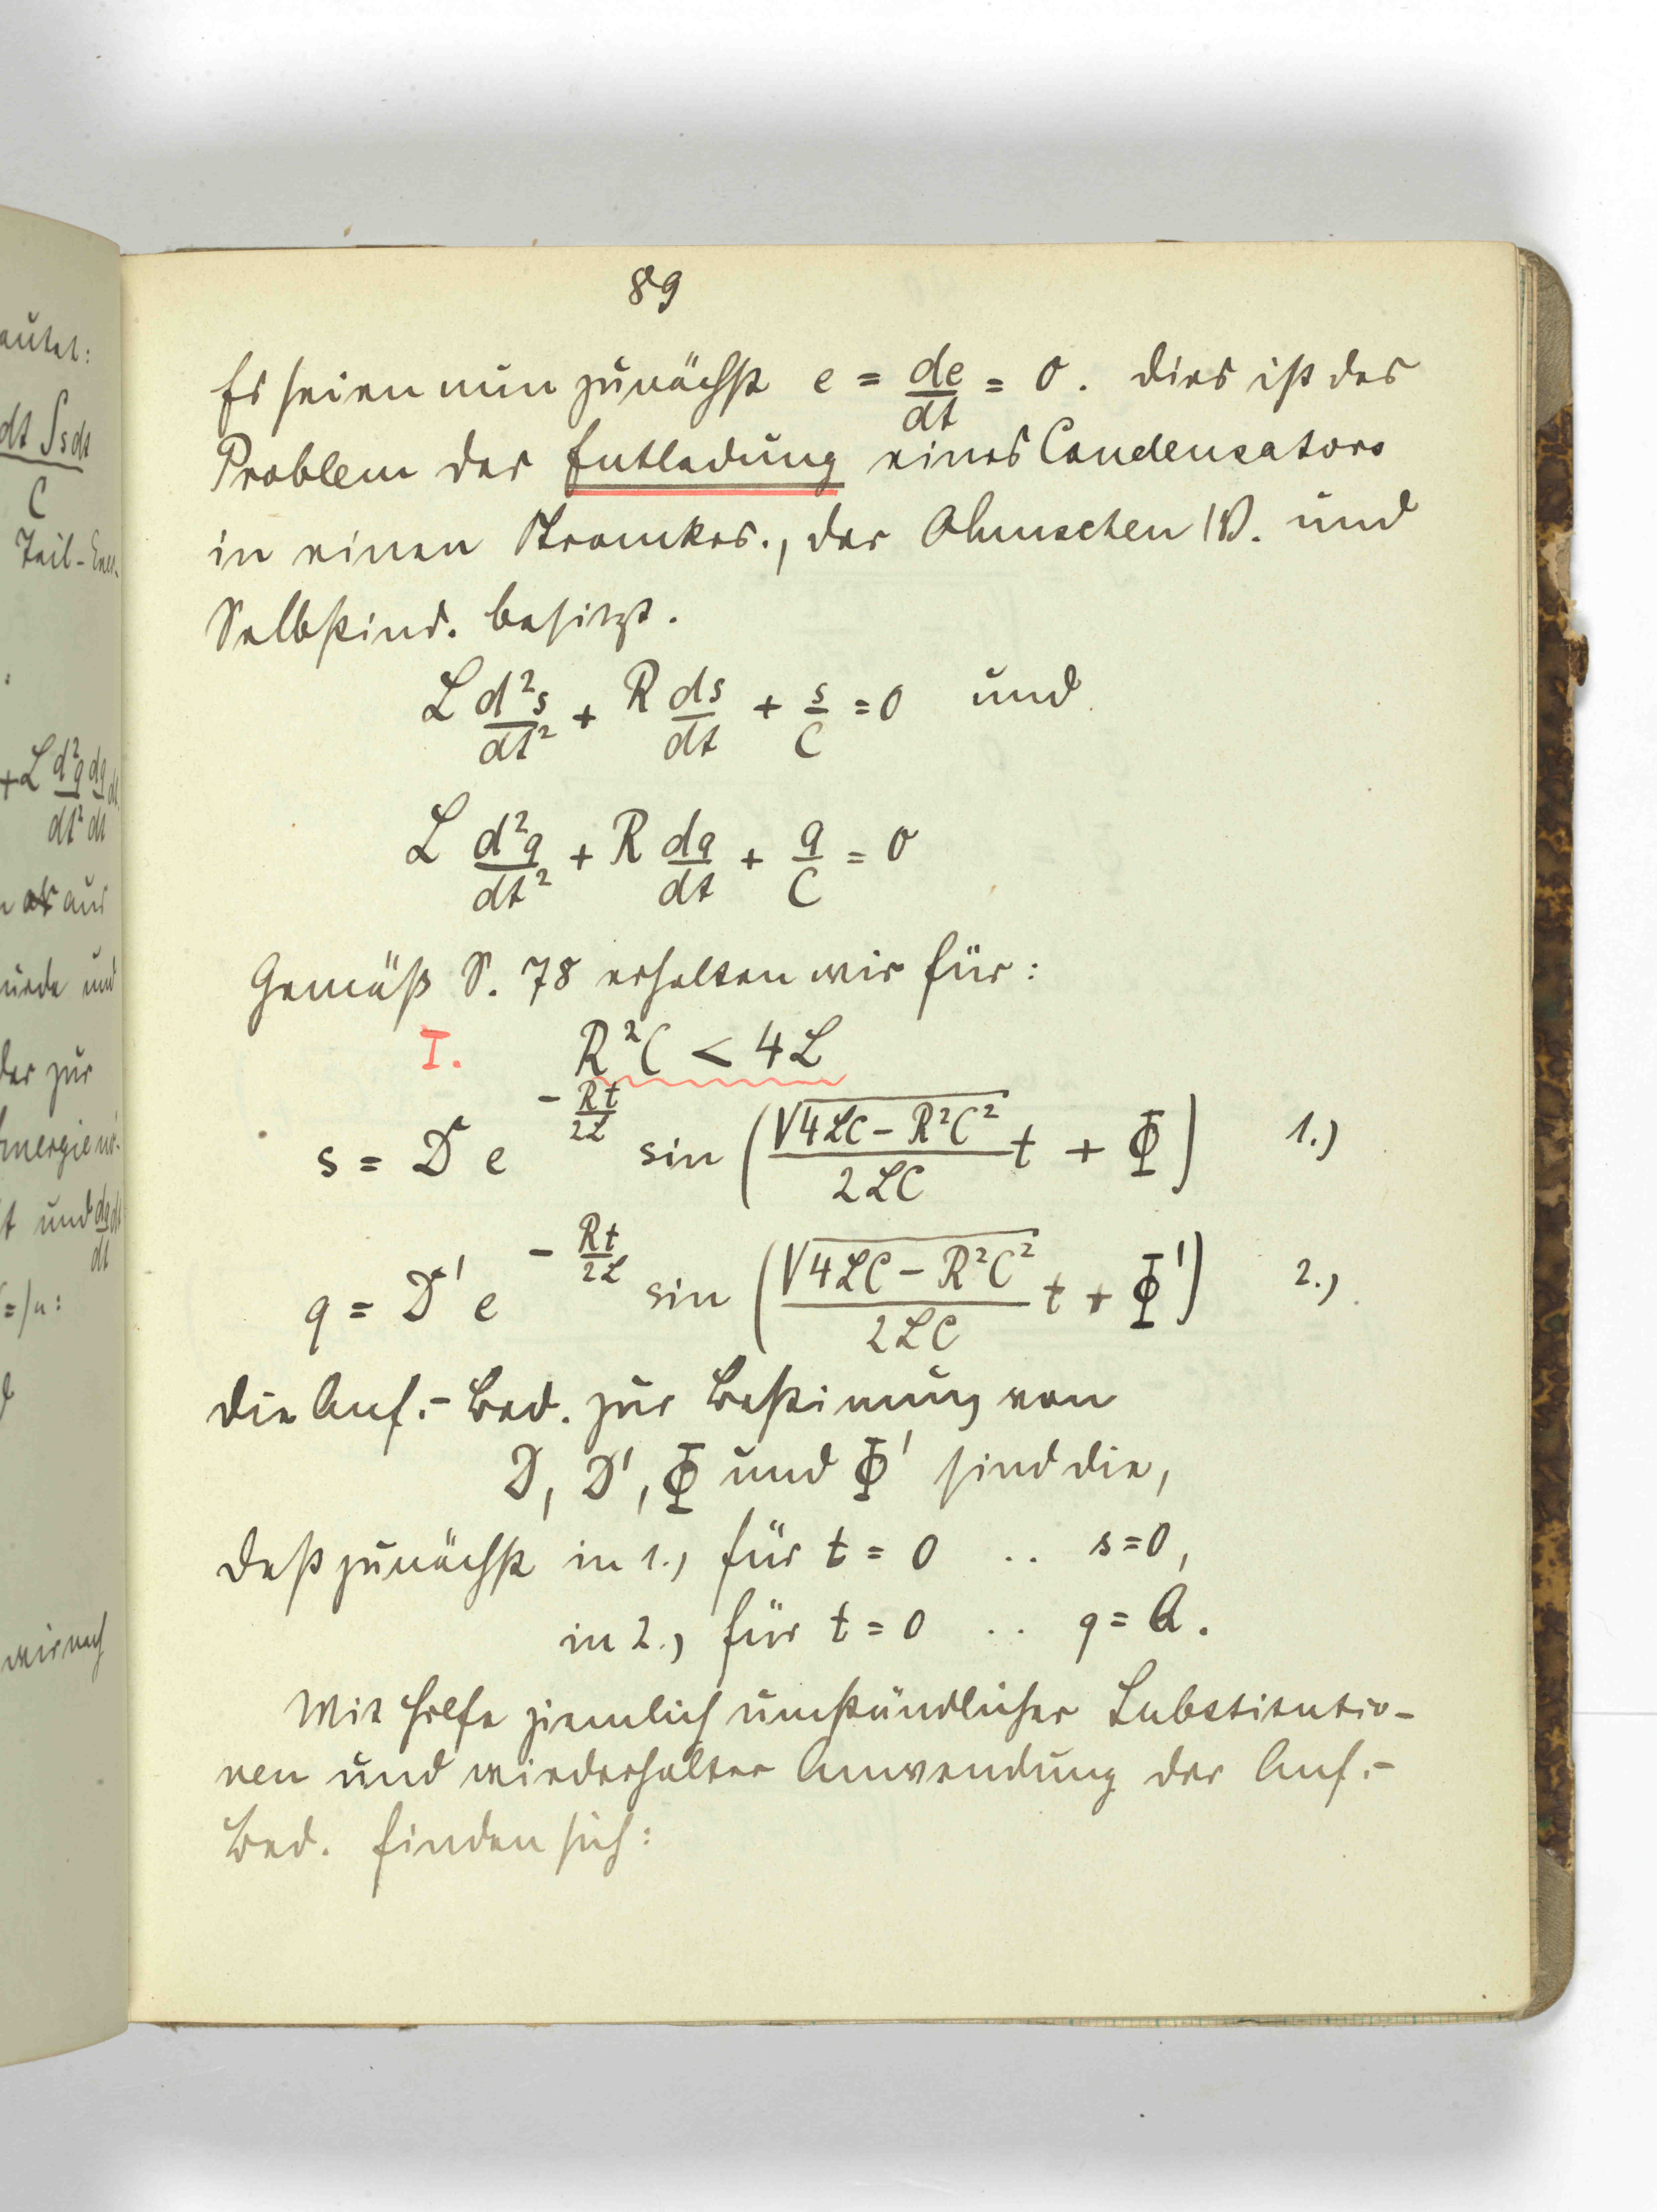 89
Es seien nun zunächst e = de/dt = 0. Dies ist das
Problem der Entladung eines Condensators
in einen Stromkrs., der Ohmschen W. und
Selbstind. besitzt.
L d²s/dt² + R ds/dt + s/C = 0 und
L d²q/dt² + R dq/dt + q/C = 0
Gemäß S. 78 erhalten wir für:
I. R²C < 4L
s = D e^(-Rt/2L) sin (√(4LC - R²C²)/2LC t + Φ) 1.)
q = D' e^(-Rt/2L) sin (√(4LC - R²C²)/2LC t + Φ') 2.)
Die Anf.-Bed. zur Bestimung von
D, D', Φ und Φ' sind die,
daß zunächst in 1.) für t = 0 .. s = 0,
in 2.) für t = 0 .. q = Q.
Mit Hilfe ziemlich umständlicher Substitutio-
nen und wiederholter Anwendung der Anf.-
Bed. finden sich:
autet:
dt ∫sdt
C
Teil-Ener.
+L d²q/dt² dq/dt dt
aus
würde und
der zur
t und dq/dt dt
wir nach